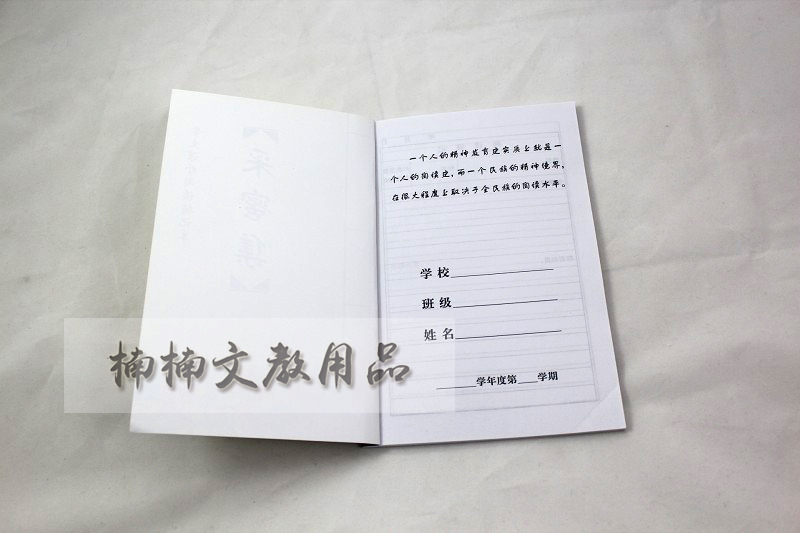 一个人的精神发育史实质上就是一
个人的阅读史，而一个民族的精神境界，
在很大程度上取决于全民族的阅读水平。
学校
班级
姓名
学年度第 学期
楠楠文教用品